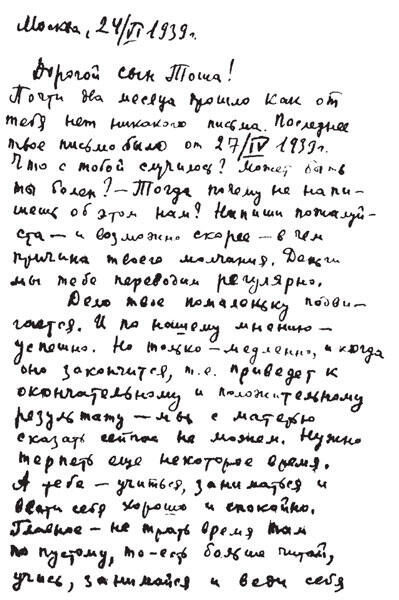 Москва, 24/VI 1939г.
Дорогой сын Тоша!
Почти два месяца прошло как от
тебя нет никакого письма. Последнее
твое письмо было от 27/IV 1939г.
Что с тобой случилось? Может быть
ты болен? – Тогда почему не напи-
шешь об этом нам? Напиши пожалуй-
ста – и возможно скорее – в чем
причина твоего молчания. Деньги
мы тебе переводим регулярно.
Дело твое помаленьку подви-
гается. И по нашему мнению –
успешно. Но только – медленно, и когда
оно закончится, т.е. приведет к
окончательному и положительному
результату – мы с матерью
сказать сейчас не можем. Нужно
терпеть еще некоторое время.
А тебе – учиться, заниматься и
вести себя хорошо и спокойно.
Главное – не трать время там
по пустому, то-есть больше читай,
учись, занимайся и веди себя